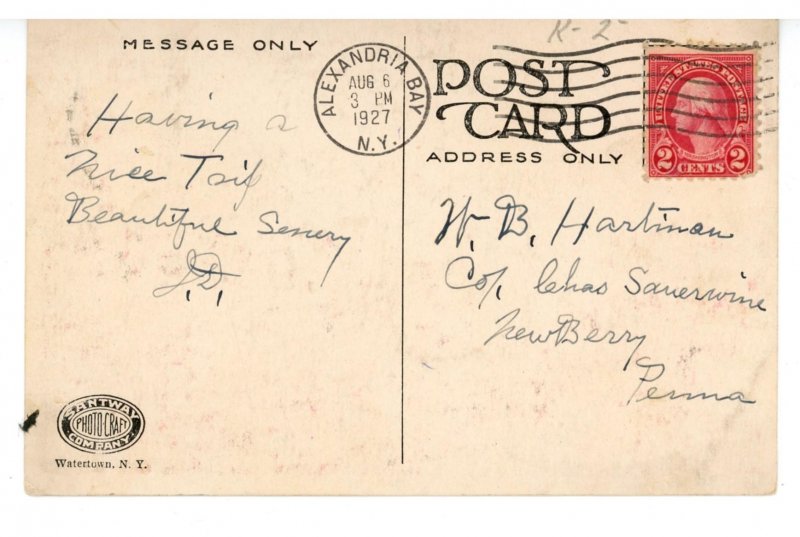 K-2-
MESSAGE ONLY
ALEXANDRIA BAY
AUG 6
3 PM
1927
N.Y.
POST
CARD
ADDRESS ONLY
UNITED STATES POSTAGE
2 CENTS 2
Having a
nice Trip
Beautiful Senery
J.D.
W. B. Hartman
Co/. Chas Sauerwine
NewBerry
Penna
SANTWAY
PHOTO-CRAFT
COMPANY
Watertown, N. Y.